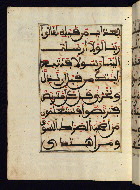 بعذاب من قبله لقالوا
ربنا لولا أرسلت
إلينا رسولا فنتبع
ءايتك من قبل أن نذل
ونخزى قل كل متربص
فتربصوا فستعلمون
من أصحب الصراط السوي
ومن اهتدى